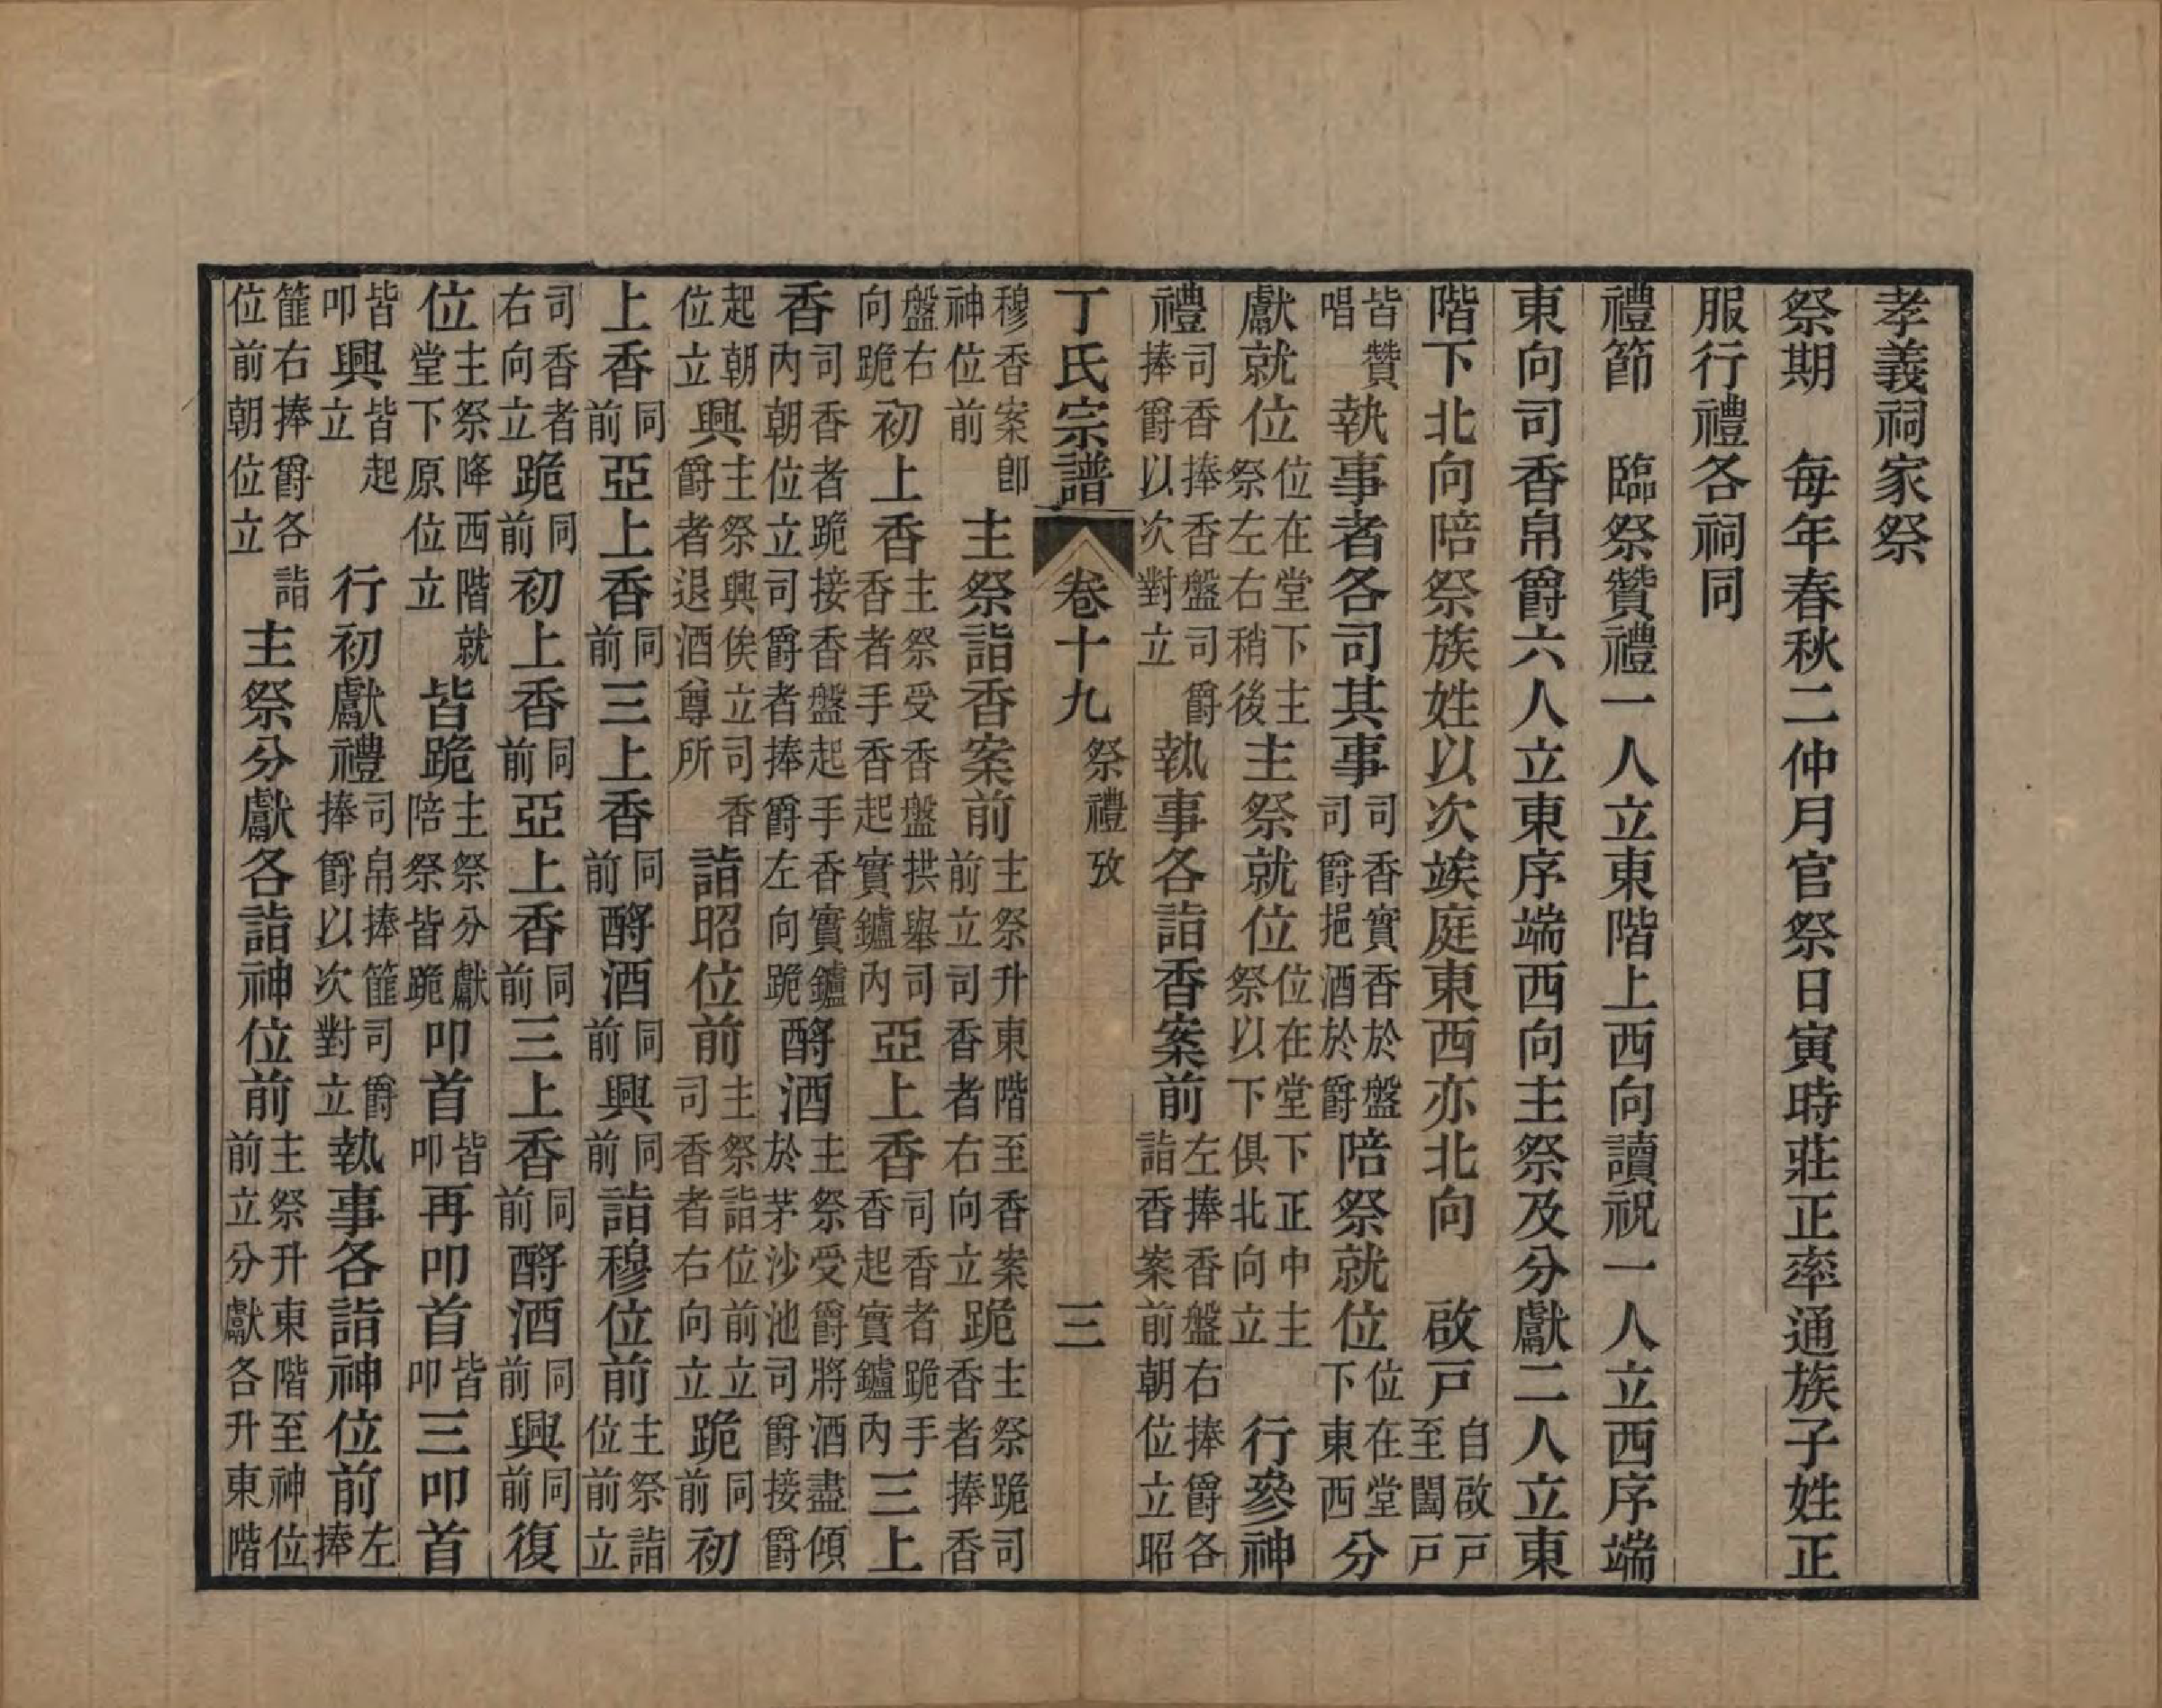 孝義祠家祭
祭期　每年春秋二仲月官祭日寅時莊正率通族子姓正
服行禮各祠同
禮節　臨祭贊禮一人立東階上西向讀祝一人立西序端
東向司香帛爵六人立東序端西向主祭及分獻二人立東
階下北向陪祭族姓以次竢庭東西亦北向　啟戶自啟戶至闔戶
皆贊唱執事者各司其事司香實香於盤司爵挹酒於爵陪祭就位位在堂下東西分
獻就位位在堂下主祭左右稍後主祭就位位在堂下正中主祭以下俱北向立　行參神
禮司香捧香盤司爵捧爵以次對立執事各詣香案前左捧香盤右捧爵各詣香案前朝位立昭
丁氏宗譜　卷十九　祭禮攷　三
穆香案卽神位前主祭詣香案前主祭升東階至香案前立司香者右向立跪主祭跪司香者捧香
盤右向跪初上香主祭受香盤拱舉司香者手香起實鑪內亞上香司香者跪手香起實鑪內三上
香司香者跪接香盤起手香實鑪內朝位立司爵者捧爵左向跪酹酒主祭受爵將酒盡傾於茅沙池司爵接爵
起朝位立興主祭興俟立司香爵者退酒尊所詣昭位前主祭詣位前立司香者右向立跪同前初
上香同前亞上香同前三上香同前酹酒同前興同前詣穆位前主祭詣位前立
司香者右向立跪同前初上香同前亞上香同前三上香同前酹酒同前興同前復
位主祭降西階就堂下原位立皆跪主祭分獻陪祭皆跪叩首皆叩再叩首皆叩三叩首
皆叩興皆起立　行初獻禮司帛捧篚司爵捧爵以次對立執事各詣神位前左捧
篚右捧爵各詣位前朝位立主祭分獻各詣神位前主祭升東階至神位前立分獻各升東階